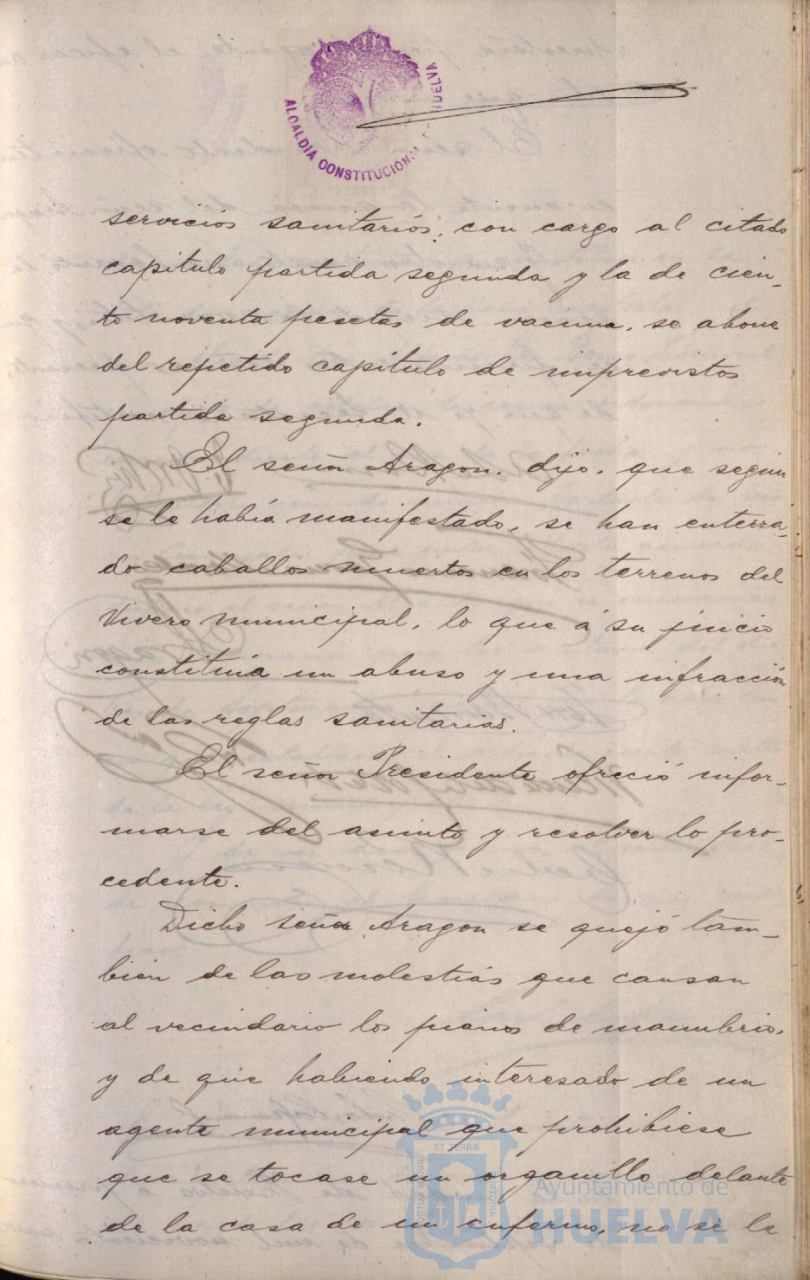 ALCALDIA CONSTITUCIONAL HUELVA
servicios sanitarios, con cargo al citado
capitulo partida segunda y la de cien-
to noventa pesetas de vacuna, se abone
del repetido capítulo de imprevistos
partida segunda.
El señor Aragon. dijo, que según
se le había manifestado, se han enterra-
do caballos muertos en los terrenos del
Vivero municipal, lo que á su juicio
constituía un abuso y una infracción
de las reglas sanitarias.
El señor Presidente ofreció infor-
marse del asunto y resolver lo pro-
cedente.
Dicho señor Aragon se quejó tam-
bién de las molestias que causan
al vecindario los pianos de manubrio,
y de que habiendo interesado de un
agente municipal que prohibiese
que se tocase un organillo delante
de la casa de un enfermo, no se le
Ayuntamiento de
HUELVA